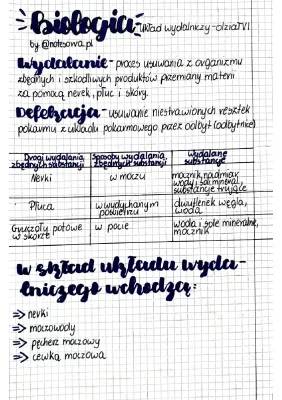 Biologia - układ wydalniczy - dział VI
by @notesowa.pl
Wydalanie - proces usuwania z organizmu
zbędnych i szkodliwych produktów przemiany materii
za pomocą nerek, płuc i skóry.
Defekacja - usuwanie niestrawionych resztek
pokarmu z układu pokarmowego przez odbyt (odbytnie)
Drogi wydalania zbędnych substancji | Sposoby wydalania zbędnych substancji | Wydalane substancje
Nerki | w moczu | mocznik, nadmiar wody i soli mineral., substancje trujące
Płuca | w wydychanym powietrzu | dwutlenek węgla, woda
Gruczoły potowe w skórze | w pocie | woda i sole mineralne, mocznik
W skład układu wyda-
lniczego wchodzą:
⇒ nerki
⇒ moczowody
⇒ pęcherz moczowy
⇒ cewka moczowa